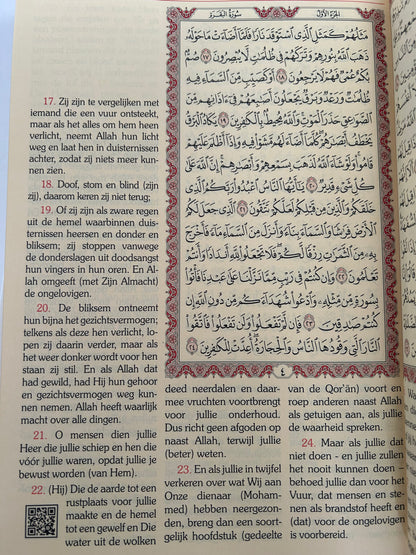 الجزء الأول
سورة البقرة
مَثَلُهُمْ كَمَثَلِ ٱلَّذِى ٱسْتَوْقَدَ نَارًا فَلَمَّآ أَضَآءَتْ مَا حَوْلَهُۥ
ذَهَبَ ٱللَّهُ بِنُورِهِمْ وَتَرَكَهُمْ فِى ظُلُمَٰتٍ لَّا يُبْصِرُونَ ١٧ صُمٌّۢ
بُكْمٌ عُمْىٌ فَهُمْ لَا يَرْجِعُونَ ١٨ أَوْ كَصَيِّبٍ مِّنَ ٱلسَّمَآءِ فِيهِ
ظُلُمَٰتٌ وَرَعْدٌ وَبَرْقٌ يَجْعَلُونَ أَصَٰبِعَهُمْ فِىٓ ءَاذَانِهِم مِّنَ
ٱلصَّوَٰعِقِ حَذَرَ ٱلْمَوْتِ وَٱللَّهُ مُحِيطٌۢ بِٱلْكَٰفِرِينَ ١٩ يَكَادُ ٱلْبَرْقُ
يَخْطَفُ أَبْصَٰرَهُمْ كُلَّمَآ أَضَآءَ لَهُم مَّشَوْا۟ فِيهِ وَإِذَآ أَظْلَمَ عَلَيْهِمْ
قَامُوا۟ وَلَوْ شَآءَ ٱللَّهُ لَذَهَبَ بِسَمْعِهِمْ وَأَبْصَٰرِهِمْ إِنَّ ٱللَّهَ عَلَىٰ
كُلِّ شَىْءٍ قَدِيرٌ ٢٠ يَٰٓأَيُّهَا ٱلنَّاسُ ٱعْبُدُوا۟ رَبَّكُمُ ٱلَّذِى
خَلَقَكُمْ وَٱلَّذِينَ مِن قَبْلِكُمْ لَعَلَّكُمْ تَتَّقُونَ ٢١ ٱلَّذِى جَعَلَ لَكُمُ
ٱلْأَرْضَ فِرَٰشًا وَٱلسَّمَآءَ بِنَآءً وَأَنزَلَ مِنَ ٱلسَّمَآءِ مَآءً فَأَخْرَجَ
بِهِۦ مِنَ ٱلثَّمَرَٰتِ رِزْقًا لَّكُمْ فَلَا تَجْعَلُوا۟ لِلَّهِ أَندَادًا وَأَنتُمْ
تَعْلَمُونَ ٢٢ وَإِن كُنتُمْ فِى رَيْبٍ مِّمَّا نَزَّلْنَا عَلَىٰ عَبْدِنَا فَأْتُوا۟
بِسُورَةٍ مِّن مِّثْلِهِۦ وَٱدْعُوا۟ شُهَدَآءَكُم مِّن دُونِ ٱللَّهِ إِن
كُنتُمْ صَٰدِقِينَ ٢٣ فَإِن لَّمْ تَفْعَلُوا۟ وَلَن تَفْعَلُوا۟ فَٱتَّقُوا۟
ٱلنَّارَ ٱلَّتِى وَقُودُهَا ٱلنَّاسُ وَٱلْحِجَارَةُ أُعِدَّتْ لِلْكَٰفِرِينَ ٢٤
٤
17. Zij zijn te vergelijken met
iemand die een vuur ontsteekt,
maar als het alles om hem heen
verlicht, neemt Allah hun licht
weg en laat hen in duisternissen
achter, zodat zij niets meer kun-
nen zien.
18. Doof, stom en blind (zijn
zij), daarom keren zij niet terug;
19. Of zij zijn als zware regen
uit de hemel waarbinnen duis-
ternissen heersen en donder en
bliksem; zij stoppen vanwege
de donderslagen uit doodsangst
hun vingers in hun oren. En Al-
lah omgeeft (met Zijn Almacht)
de ongelovigen.
20. De bliksem ontneemt
hun bijna het gezichtsvermogen;
telkens als deze hen verlicht, lo-
pen zij daarin verder, maar als
het weer donker wordt voor hen
staan zij stil. En als Allah dat
had gewild, had Hij hun gehoor
en gezichtsvermogen weg kun-
nen nemen. Allah heeft waarlijk
macht over alle dingen.
21. O mensen dien jullie
Heer die jullie schiep en hen die
vóór jullie waren, opdat jullie je
bewust worden (van Hem).
22. (Hij) Die de aarde tot een
rustplaats voor jullie
maakte en de hemel
tot een gewelf en Die
water uit de wolken
deed neerdalen en daar-
mee vruchten voortbrengt
voor jullie onderhoud.
Dus richt geen afgoden op
naast Allah, terwijl jullie
(beter) weten.
23. En als jullie in twijfel
verkeren over wat Wij aan
Onze dienaar (Moham-
med) hebben neergezon-
den, breng dan een soort-
gelijk hoofdstuk (gedeelte
van de Qor'ân) voort en
roep anderen naast Allah
als getuigen aan, als jullie
de waarheid spreken.
24. Maar als jullie dat
niet doen - en jullie zullen
het nooit kunnen doen -
behoed jullie dan voor het
Vuur, dat mensen en ste-
nen als brandstof heeft en
(dat) voor de ongelovigen
is voorbereid.